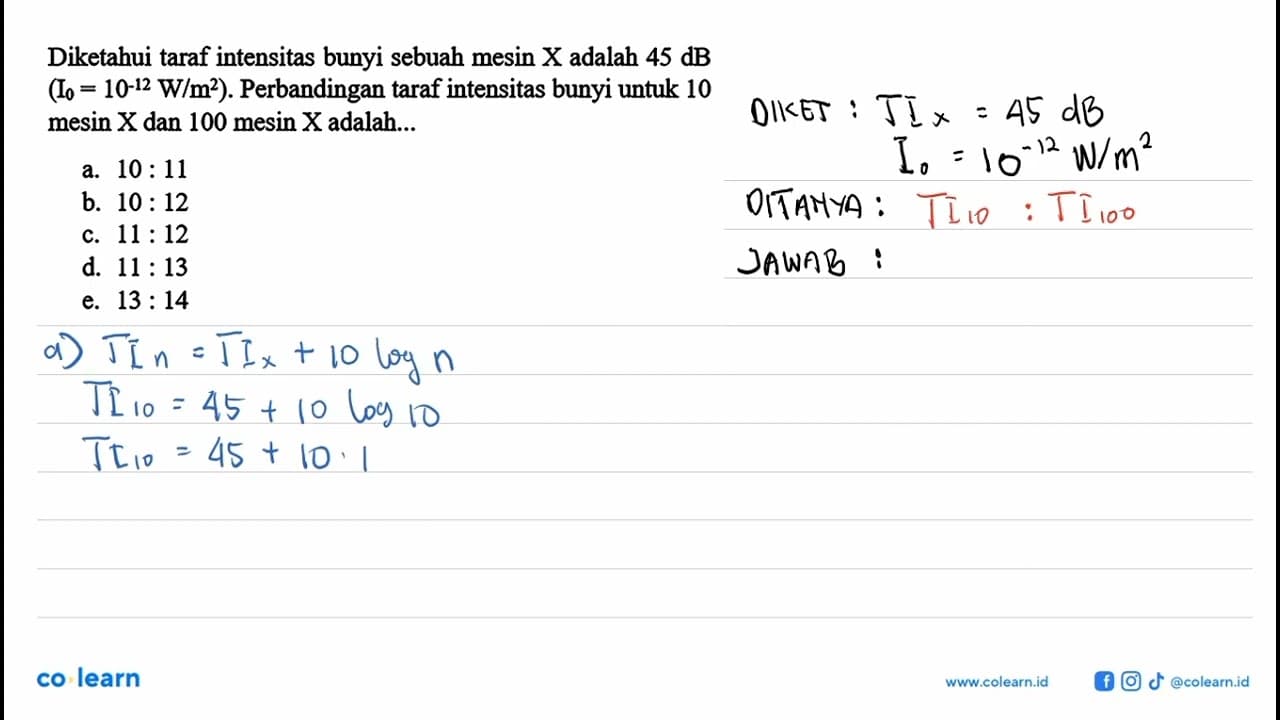 Diketahui taraf intensitas bunyi sebuah mesin X adalah 45 dB
(I₀ = 10⁻¹² W/m²). Perbandingan taraf intensitas bunyi untuk 10
mesin X dan 100 mesin X adalah...
a. 10 : 11
b. 10 : 12
c. 11 : 12
d. 11 : 13
e. 13 : 14
DIKET : TIₓ = 45 dB
I₀ = 10⁻¹² W/m²
DITANYA : TI₁₀ : TI₁₀₀
JAWAB :
a) TI n = TIₓ + 10 log n
TI₁₀ = 45 + 10 log 10
TI₁₀ = 45 + 10 . 1
co learn
www.colearn.id
@colearn.id